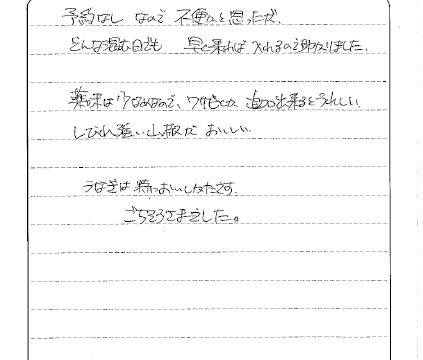 予約なし なので 不便かと思ったが、
どんな混む日でも 早く来れば 入れるので助かりました。
薬味は少なめなので、ワサビとか 追加出来るとうれしい
しびれ強い山椒が おいしい
うなぎは特においしかったです。
ごちそうさまでした。